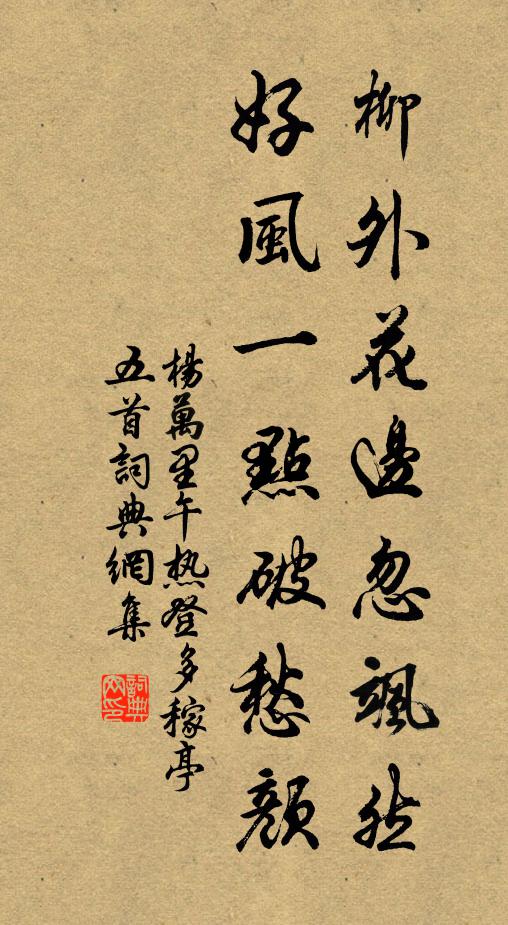 柳外花邊忽颯然
好風一點破愁顏
楊萬里午热登多稼亭
五首詞典網集
詞典
网印